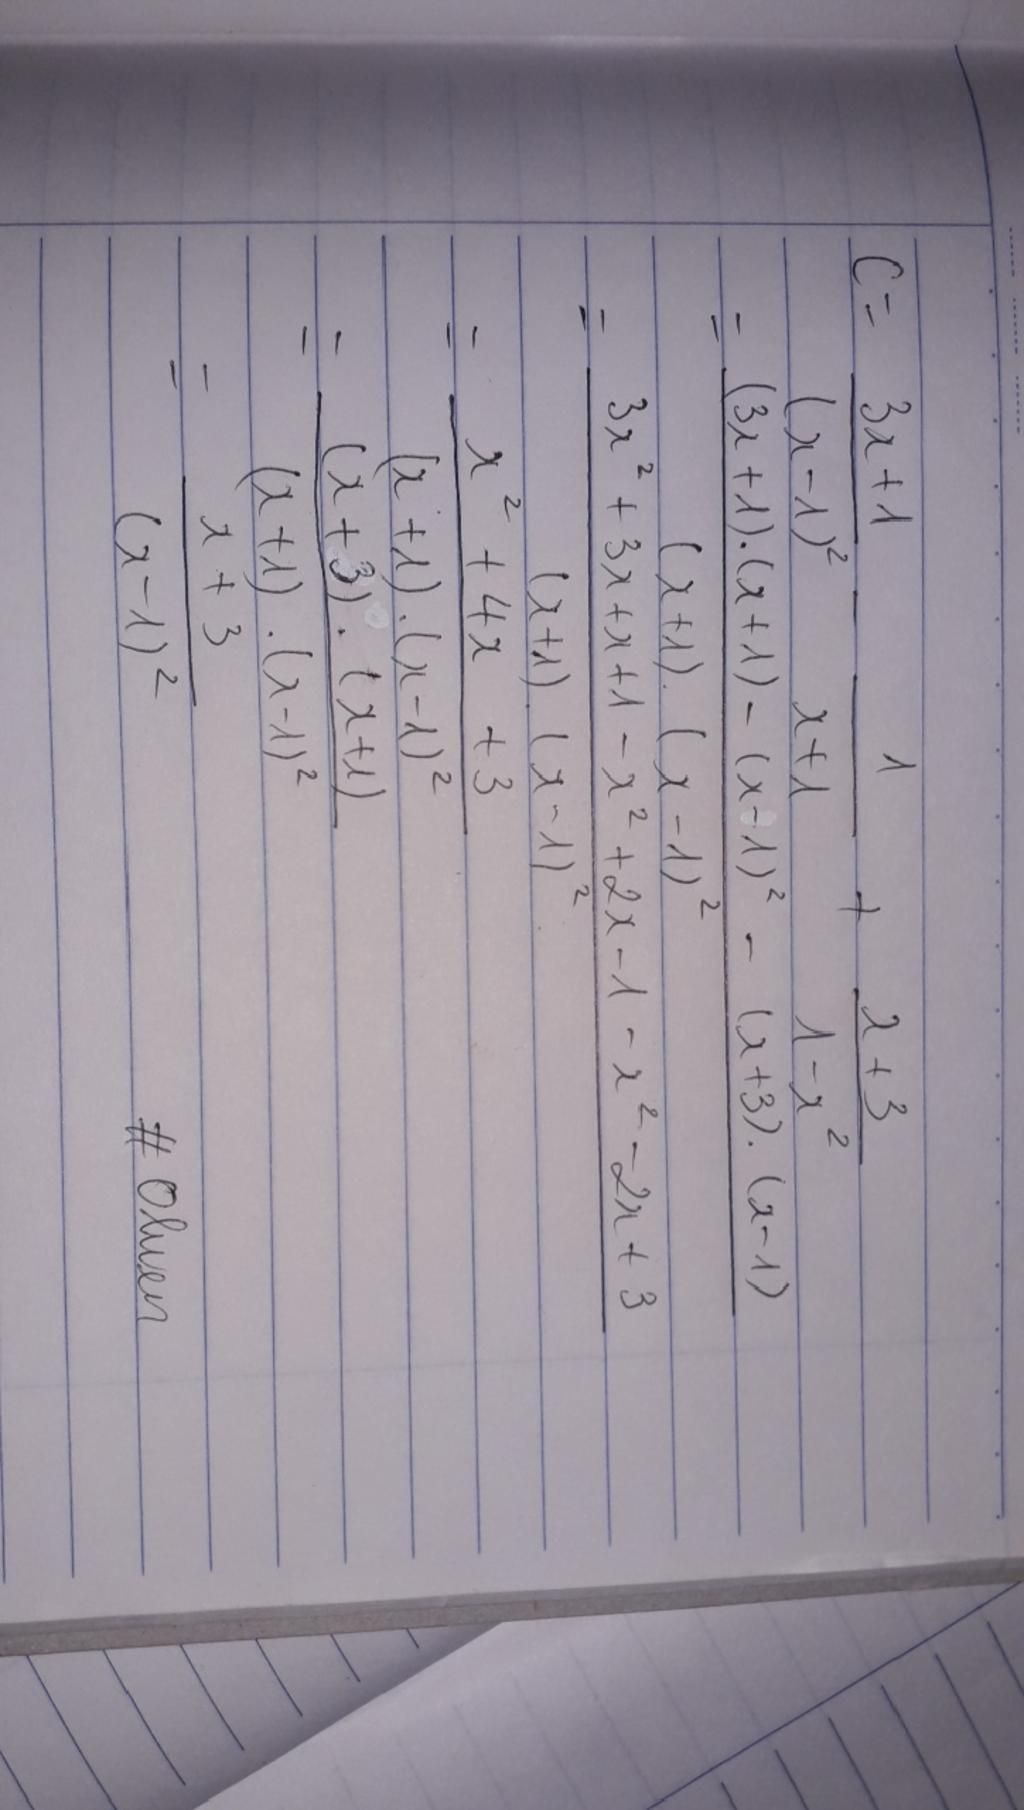 C = \frac{3x+1}{(x-1)^2} - \frac{1}{x+1} + \frac{x+3}{1-x^2}
= \frac{(3x+1).(x+1) - (x-1)^2 - (x+3).(x-1)}{(x+1).(x-1)^2}
= \frac{3x^2+3x+x+1-x^2+2x-1-x^2-2x+3}{(x+1).(x-1)^2}
= \frac{x^2+4x+3}{(x+1).(x-1)^2}
= \frac{(x+3).(x+1)}{(x+1).(x-1)^2}
= \frac{x+3}{(x-1)^2}